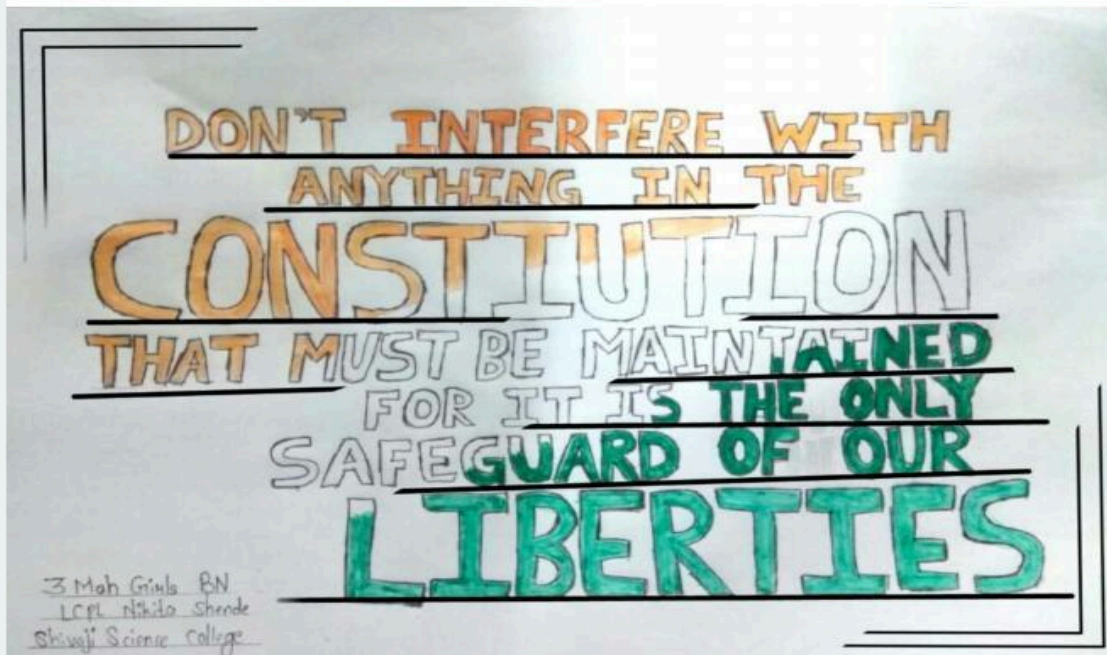 DON'T INTERFERE WITH
ANYTHING IN THE
CONSTIUTION
THAT MUST BE MAINTAINED
FOR IT IS THE ONLY
SAFEGUARD OF OUR
LIBERTIES
3 Mah Girls BN
LCPL Nikita Shende
Shivaji Science College